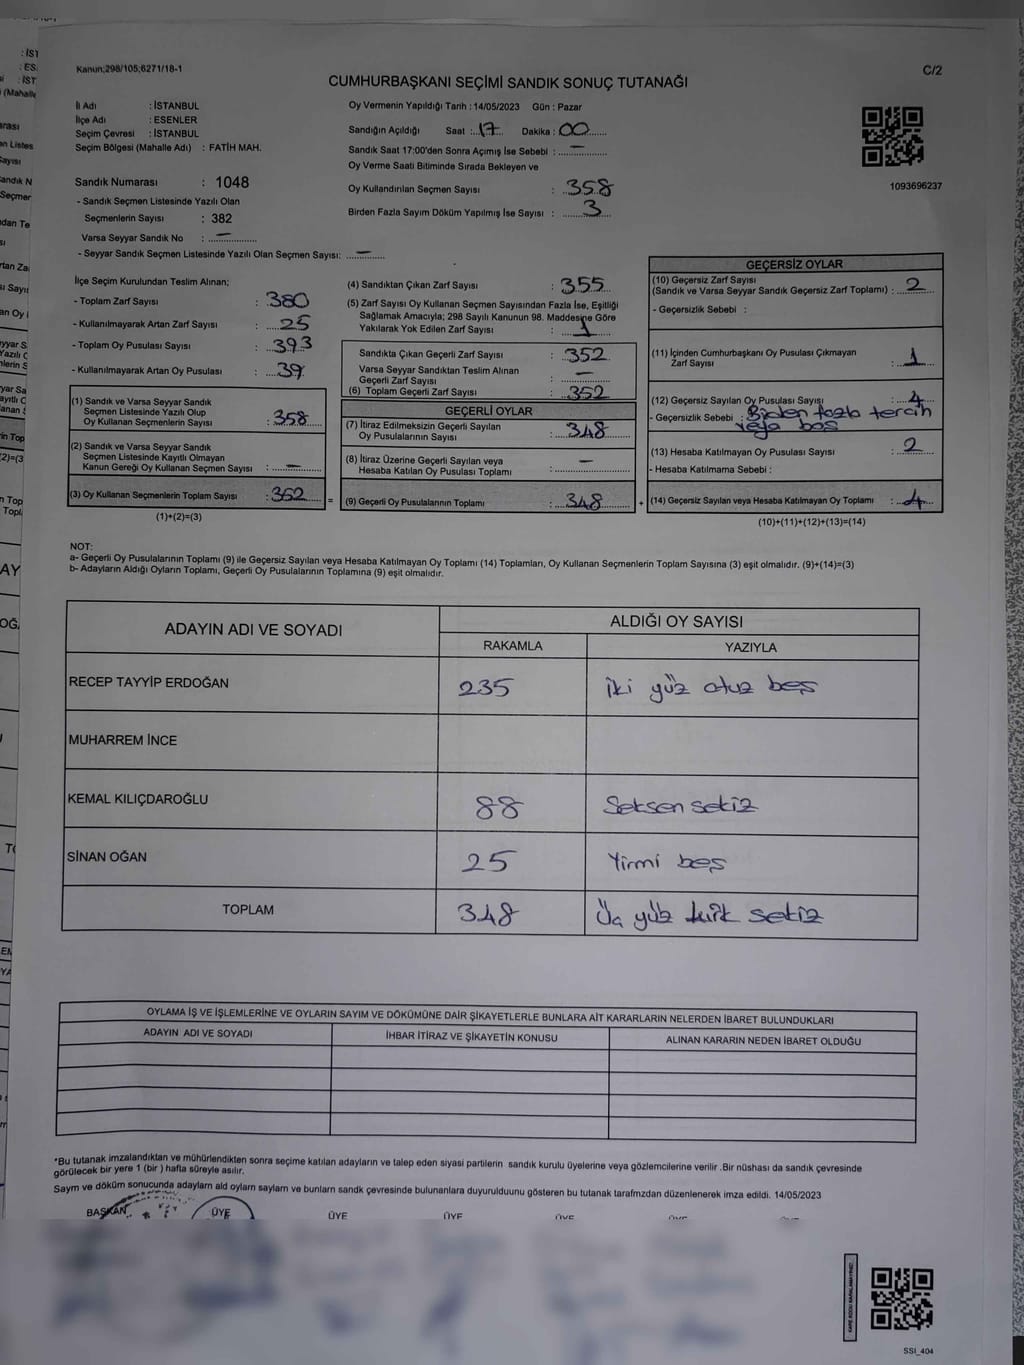 Kanun;298/105;6271/18-1
C/2
CUMHURBAŞKANI SEÇİMİ SANDIK SONUÇ TUTANAĞI
İl Adı : İSTANBUL
İlçe Adı : ESENLER
Seçim Çevresi : İSTANBUL
Seçim Bölgesi (Mahalle Adı) : FATİH MAH.
Sandık Numarası : 1048
- Sandık Seçmen Listesinde Yazılı Olan
Seçmenlerin Sayısı : 382
Varsa Seyyar Sandık No : —
- Seyyar Sandık Seçmen Listesinde Yazılı Olan Seçmen Sayısı: —
Oy Vermenin Yapıldığı Tarih : 14/05/2023 Gün : Pazar
Sandığın Açıldığı Saat : 17 Dakika : 00
Sandık Saat 17:00'den Sonra Açımış İse Sebebi : —
Oy Verme Saati Bitiminde Sırada Bekleyen ve
Oy Kullandırılan Seçmen Sayısı : 358
Birden Fazla Sayım Döküm Yapılmış İse Sayısı : 3
1093696237
İlçe Seçim Kurulundan Teslim Alınan;
- Toplam Zarf Sayısı : 380
- Kullanılmayarak Artan Zarf Sayısı : 25
- Toplam Oy Pusulası Sayısı : 393
- Kullanılmayarak Artan Oy Pusulası : 39
(1) Sandık ve Varsa Seyyar Sandık
Seçmen Listesinde Yazılı Olup
Oy Kullanan Seçmenlerin Sayısı : 358
(2) Sandık ve Varsa Seyyar Sandık
Seçmen Listesinde Kayıtlı Olmayan
Kanun Gereği Oy Kullanan Seçmen Sayısı : —
(3) Oy Kullanan Seçmenlerin Toplam Sayısı : 352
(1)+(2)=(3)
(4) Sandıktan Çıkan Zarf Sayısı : 355
(5) Zarf Sayısı Oy Kullanan Seçmen Sayısından Fazla İse, Eşitliği
Sağlamak Amacıyla; 298 Sayılı Kanunun 98. Maddesine Göre
Yakılarak Yok Edilen Zarf Sayısı : 1
Sandıkta Çıkan Geçerli Zarf Sayısı : 352
Varsa Seyyar Sandıktan Teslim Alınan
Geçerli Zarf Sayısı : —
(6) Toplam Geçerli Zarf Sayısı : 352
GEÇERLİ OYLAR
(7) İtiraz Edilmeksizin Geçerli Sayılan
Oy Pusulalarının Sayısı : 348
(8) İtiraz Üzerine Geçerli Sayılan veya
Hesaba Katılan Oy Pusulası Toplamı : —
= (9) Geçerli Oy Pusulalarının Toplamı : 348 +
GEÇERSİZ OYLAR
(10) Geçersiz Zarf Sayısı
(Sandık ve Varsa Seyyar Sandık Geçersiz Zarf Toplamı) : 2
- Geçersizlik Sebebi :
(11) İçinden Cumhurbaşkanı Oy Pusulası Çıkmayan
Zarf Sayısı : 1
(12) Geçersiz Sayılan Oy Pusulası Sayısı : 4
- Geçersizlik Sebebi : Birden fazla tercih
veya boş
(13) Hesaba Katılmayan Oy Pusulası Sayısı : 2
- Hesaba Katılmama Sebebi :
(14) Geçersiz Sayılan veya Hesaba Katılmayan Oy Toplamı : 4
(10)+(11)+(12)+(13)=(14)
NOT:
a- Geçerli Oy Pusulalarının Toplamı (9) ile Geçersiz Sayılan veya Hesaba Katılmayan Oy Toplamı (14) Toplamları, Oy Kullanan Seçmenlerin Toplam Sayısına (3) eşit olmalıdır. (9)+(14)=(3)
b- Adayların Aldığı Oyların Toplamı, Geçerli Oy Pusulalarının Toplamına (9) eşit olmalıdır.
ADAYIN ADI VE SOYADI ALDIĞI OY SAYISI
RAKAMLA YAZIYLA
RECEP TAYYİP ERDOĞAN 235 İki yüz otuz beş
MUHARREM İNCE
KEMAL KILIÇDAROĞLU 88 Seksen sekiz
SİNAN OĞAN 25 Yirmi beş
TOPLAM 348 Üç yüz kırk sekiz
OYLAMA İŞ VE İŞLEMLERİNE VE OYLARIN SAYIM VE DÖKÜMÜNE DAİR ŞİKAYETLERLE BUNLARA AİT KARARLARIN NELERDEN İBARET BULUNDUKLARI
ADAYIN ADI VE SOYADI İHBAR İTİRAZ VE ŞİKAYETİN KONUSU ALINAN KARARIN NEDEN İBARET OLDUĞU
*Bu tutanak imzalandıktan ve mühürlendikten sonra seçime katılan adayların ve talep eden siyasi partilerin sandık kurulu üyelerine veya gözlemcilerine verilir .Bir nüshası da sandık çevresinde
görülecek bir yere 1 (bir ) hafta süreyle asılır.
Sayım ve döküm sonucunda adaylarn ald oylarn saylam ve bunlarn sandk çevresinde bulunanlara duyurulduunu gösteren bu tutanak tarafmzdan düzenlenerek imza edildi. 14/05/2023
BAŞKAN ÜYE ÜYE ÜYE ÜYE
SSI_404